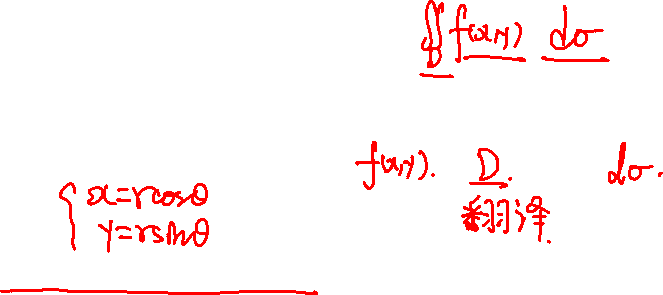 ∬f(x,y) dσ
f(x,y). D. dσ.
翻译
{x=rcosθ
y=rsinθ